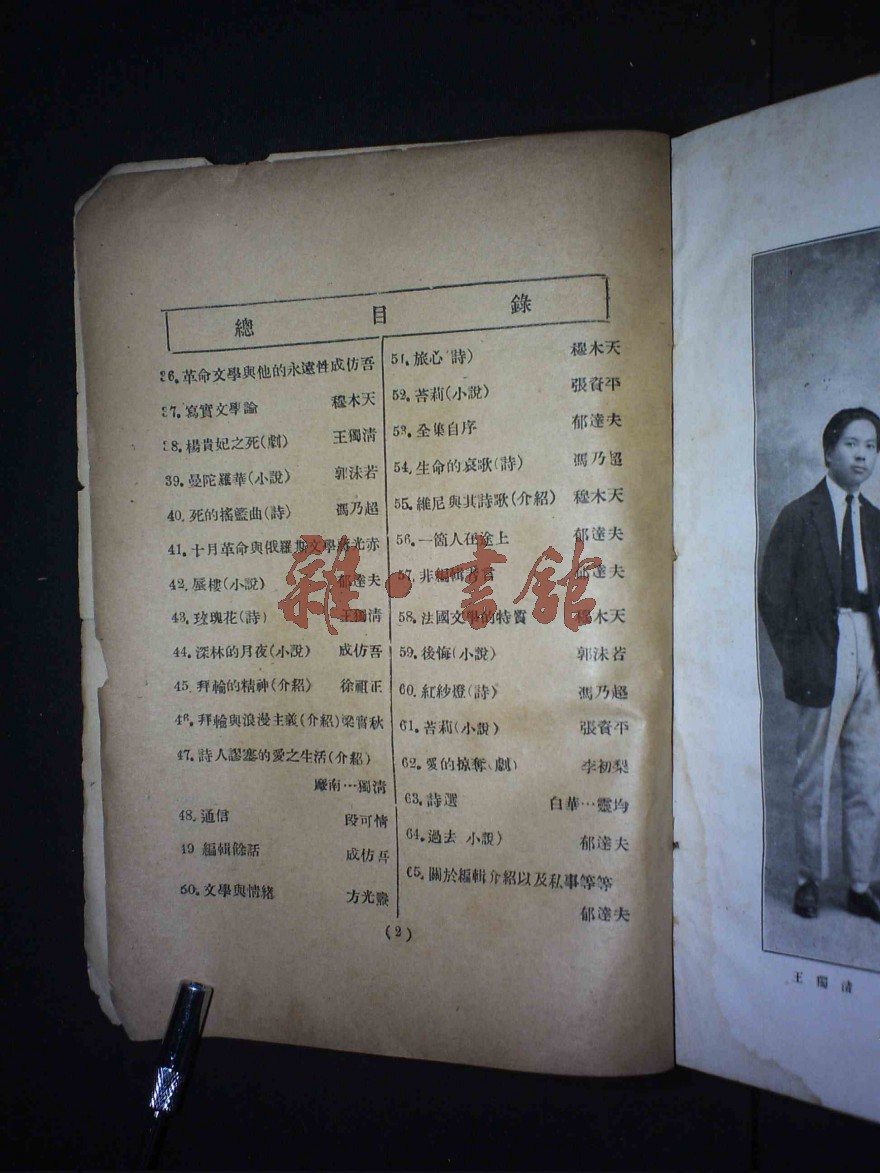 總目錄
36. 革命文學與他的永遠性 成仿吾
37. 寫實文學論 穆木天
38. 楊貴妃之死(劇) 王獨淸
39. 曼陀羅華(小說) 郭沫若
40. 死的搖籃曲(詩) 馮乃超
41. 十月革命與俄羅斯文學 蔣光赤
42. 蜃樓(小說) 郁達夫
43. 玫瑰花(詩) 王獨淸
44. 深林的月夜(小說) 成仿吾
45. 拜輪的精神(介紹) 徐祖正
46. 拜輪與浪漫主義(介紹) 梁實秋
47. 詩人謬塞的愛之生活(介紹)
廖南…獨淸
48. 通信 段可情
49 編輯餘話 成仿吾
50. 文學與情緒 方光燾
51. 旅心(詩) 穆木天
52. 苔莉(小說) 張資平
53. 全集自序 郁達夫
54. 生命的哀歌(詩) 馮乃超
55. 維尼與其詩歌(介紹) 穆木天
56. 一箇人在途上 郁達夫
57. 非編輯者言 郁達夫
58. 法國文學的特質 穆木天
59. 後悔(小說) 郭沫若
60. 紅紗燈(詩) 馮乃超
61. 苔莉(小說) 張資平
62. 愛的掠奪(劇) 李初梨
63. 詩選 白華…靈均
64. 過去 小說) 郁達夫
65. 關於編輯介紹以及私事等等
郁達夫
(2)
王獨清
雜·書館